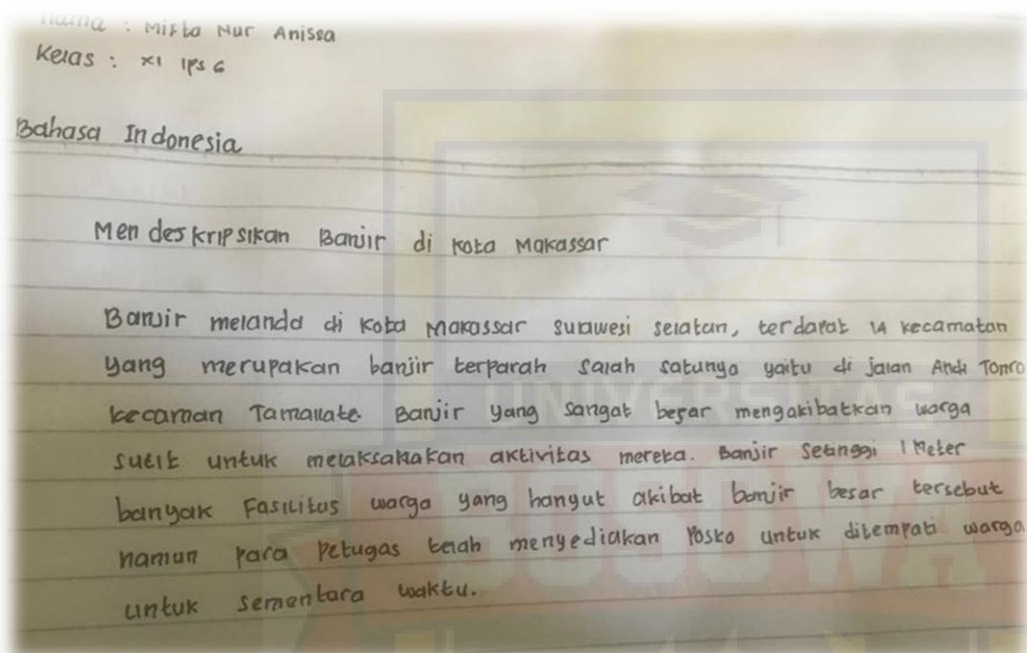 Nama : Mifta Nur Anissa
Kelas : XI IPS 6
Bahasa Indonesia
Mendeskripsikan Banjir di Kota Makassar
Banjir melanda di Kota Makassar Sulawesi selatan, terdapat 14 kecamatan
yang merupakan banjir terparah salah satunya yaitu di jalan Andi Tonro
kecaman Tamalate. Banjir yang sangat besar mengakibatkan warga
sulit untuk melaksanakan aktivitas mereka. Banjir Setinggi 1 Meter
banyak Fasilitas warga yang hanyut akibat banjir besar tersebut
namun para Petugas telah menyediakan Posko untuk ditempati warga
untuk sementara waktu.
UNIVERSITAS
BOSOWA